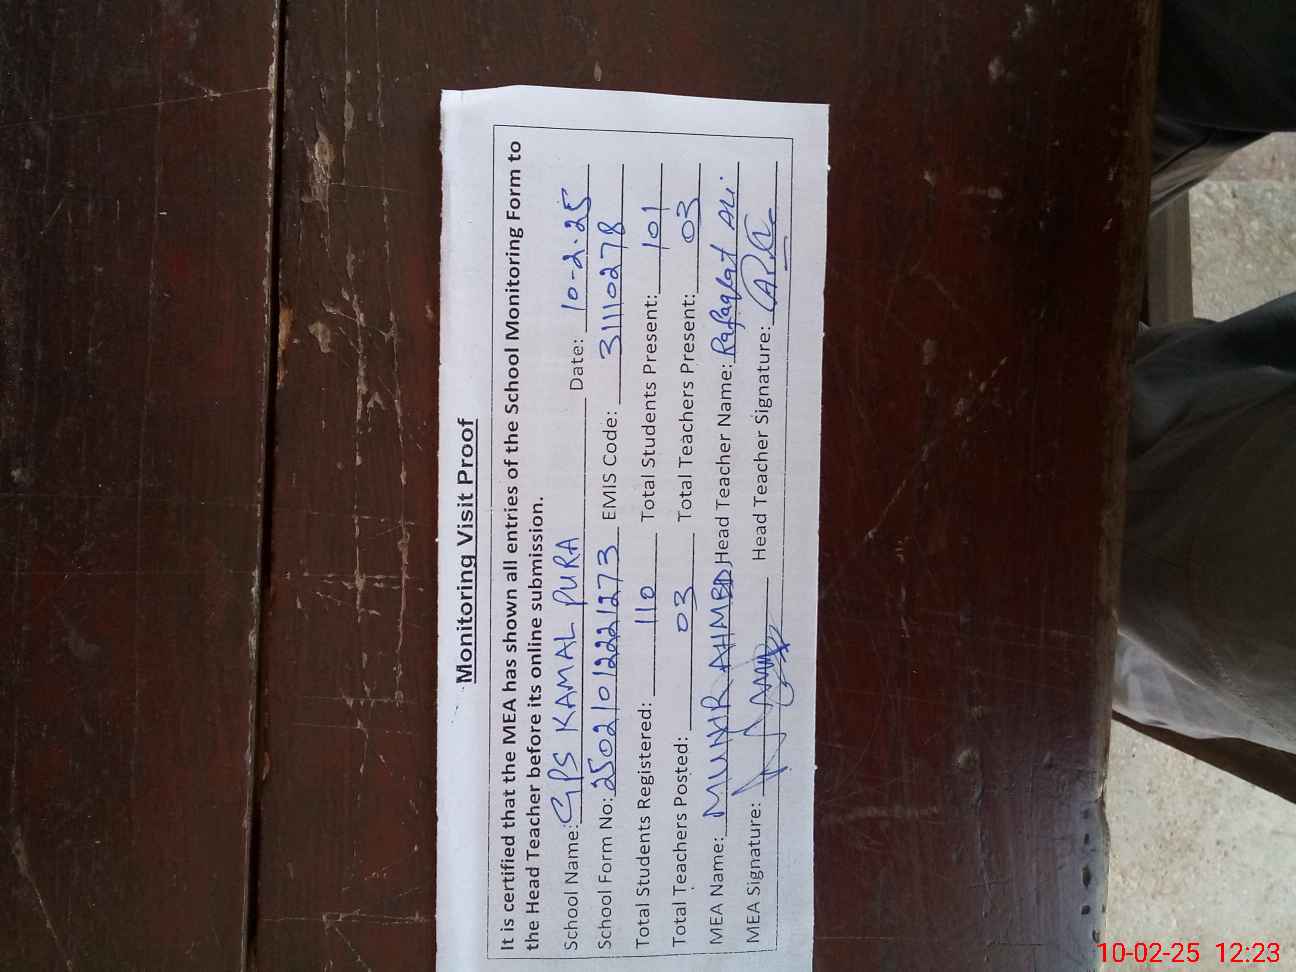 Monitoring Visit Proof
It is certified that the MEA has shown all entries of the School Monitoring Form to
the Head Teacher before its online submission.
School Name: GPS KAMAL PURA Date: 10-2-25
School Form No: 25021012221273 EMIS Code: 31110278
Total Students Registered: 110 Total Students Present: 101
Total Teachers Posted: 03 Total Teachers Present: 03
MEA Name: MUNIR AHMED Head Teacher Name: Rafaqat ALi
MEA Signature: Head Teacher Signature:
10-02-25 12:23